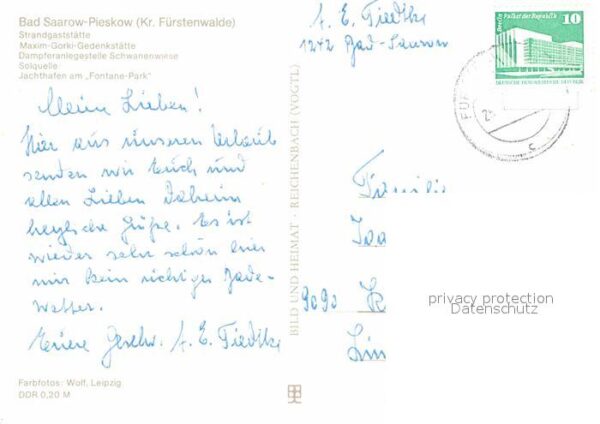 Bad Saarow-Pieskow (Kr. Fürstenwalde)
Strandgaststätte
Maxim-Gorki-Gedenkstätte
Dampferanlegestelle Schwanenwiese
Solquelle
Jachthafen am „Fontane-Park"
Meine Lieben!
Hier aus unserem Urlaub
senden wir Euch und
allen Lieben Daheim
herzliche Grüße. Es ist
wieder sehr schön hier
nur kein richtiges Bade-
wetter.
Eure Geschw. A. E. Fiedtke
Farbfotos: Wolf, Leipzig
DDR 0,20 M
BILD UND HEIMAT · REICHENBACH (VOGTL)
A. E. Fiedtke
1242 Bad-Saarow
Berlin Palast der Republik
10
FÜR
Familie
9090
privacy protection
Datenschutz